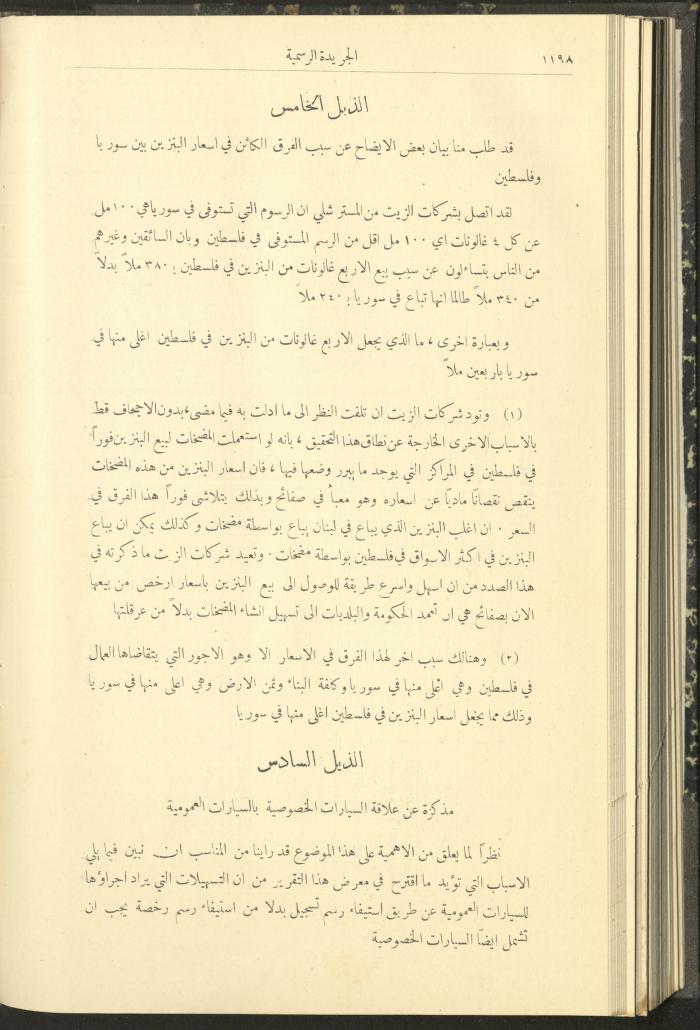 ١١٩٨
الجريدة الرسمية
الذيل الخامس
قد طلب منا بيان بعض الايضاح عن سبب الفرق الكائن في اسعار البنزين بين سوريا
وفلسطين
لقد اتصل بشركات الزيت من المستر شلي ان الرسوم التي تستوفى في سورياهي ١٠٠ مل
عن كل ٤ غالونات اي ١٠٠ مل اقل من الرسم المستوفى في فلسطين وبان السائقين وغيرهم
من الناس يتساءلون عن سبب بيع الاربع غالونات من البنزين في فلسطين بـ ٣٨٠ ملاً بدلاً
من ٣٤٠ ملاً طالما انها تباع في سوريا بـ ٢٤٠ ملاً
وبعبارة اخرى ، ما الذي يجعل الاربع غالونات من البنزين في فلسطين اغلى منها في
سوريا باربعين ملاً
(١) وتود شركات الزيت ان تلفت النظر الى ما ادلت به فيما مضى،بدون الاجحاف قط
بالاسباب الاخرى الخارجة عن نطاق هذا التحقيق ، بانه لو استعملت المضخات لبيع البنزين فوراً
في فلسطين في المراكز التي يوجد ما يبرر وضعها فيها ، فان اسعار البنزين من هذه المضخات
ينقص نقصانًا ماديًا عن اسعاره وهو معبأ في صفائح وبذلك يتلاشى فوراً هذا الفرق في
السعر ٠ ان اغلب البنزين الذي يباع في لبنان يباع بواسطة مضخات وكذلك يمكن ان يباع
البنزين في اكثر الاسواق في فلسطين بواسطة مضخات ٠ وتعيد شركات الزيت ما ذكرته في
هذا الصدد من ان اسهل واسرع طريقة للوصول الى بيع البنزين باسعار ارخص من بيعها
الان بصفائح هي ان تعمد الحكومة والبلديات الى تسهيل انشاء المضخات بدلاً من عرقلتها
(٢) وهنالك سبب اخر لهذا الفرق في الاسعار الا وهو الاجور التي يتقاضاها العمال
في فلسطين وهي اعلى منها في سوريا وكلفة البناء وثمن الارض وهي اعلى منها في سوريا
وذلك مما يجعل اسعار البنزين في فلسطين اغلى منها في سوريا
الذيل السادس
مذكرة عن علاقة السيارات الخصوصية بالسيارات العمومية
نظراً لما يعلق من الاهمية على هذا الموضوع قد راينا من المناسب ان نبين فيما يلي
الاسباب التي تؤيد ما اقترح في معرض هذا التقرير من ان التسهيلات التي يراد اجراؤها
للسيارات العمومية عن طريق استيفاء رسم تسجيل بدلا من استيفاء رسم رخصة يجب ان
تشمل ايضًا السيارات الخصوصية